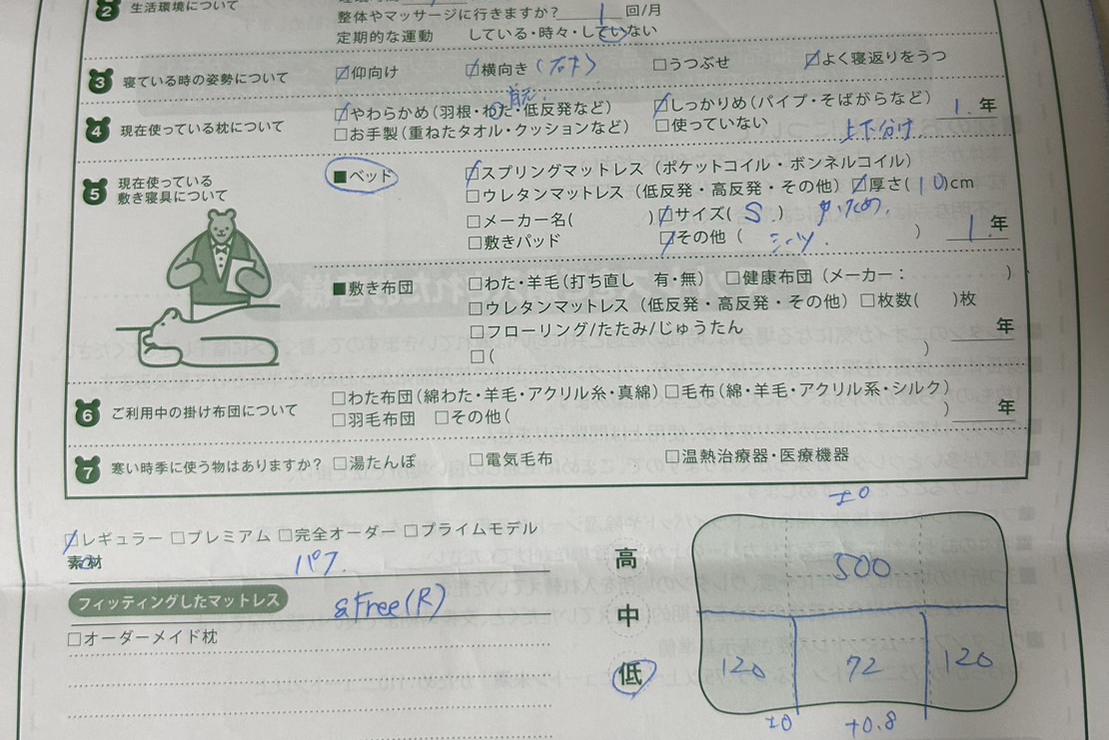 2 生活環境について
整体やマッサージに行きますか? 1 回/月
定期的な運動 している・時々・していない
3 寝ている時の姿勢について ☑仰向け ☑横向き(右キ) □うつぶせ ☑よく寝返りをうつ
4 現在使っている枕について ☑やわらかめ(羽根・わた・低反発など) ☑しっかりめ(パイプ・そばがらなど) 1. 年
□お手製(重ねたタオル・クッションなど) □使っていない 上下分け
5 現在使っている敷き寝具について ■ベッド ☑スプリングマットレス(ポケットコイル・ボンネルコイル)
□ウレタンマットレス(低反発・高反発・その他) ☑厚さ(10)cm
□メーカー名( ) ☑サイズ( S )
□敷きパッド ☑その他( シーツ. ) 1. 年
■敷き布団 □わた・羊毛(打ち直し 有・無) □健康布団(メーカー: )
□ウレタンマットレス(低反発・高反発・その他) □枚数( )枚
□フローリング/たたみ/じゅうたん 年
□( )
6 ご利用中の掛け布団について □わた布団(綿わた・羊毛・アクリル糸・真綿) □毛布(綿・羊毛・アクリル系・シルク)
□羽毛布団 □その他( ) 年
7 寒い時季に使う物はありますか? □湯たんぽ □電気毛布 □温熱治療器・医療機器
☑レギュラー □プレミアム □完全オーダー □プライムモデル
素材 パフ.
フィッティングしたマットレス &Free(R)
□オーダーメイド枕
高
中
低
±0
500
120 72 120
±0 +0.8